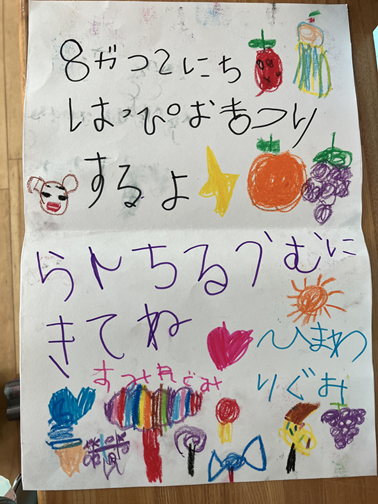 8がつ2にち
はっぴおまつり
するよ
らんちるうむに
きてね
ひまわ
りぐみ
すみれぐみ